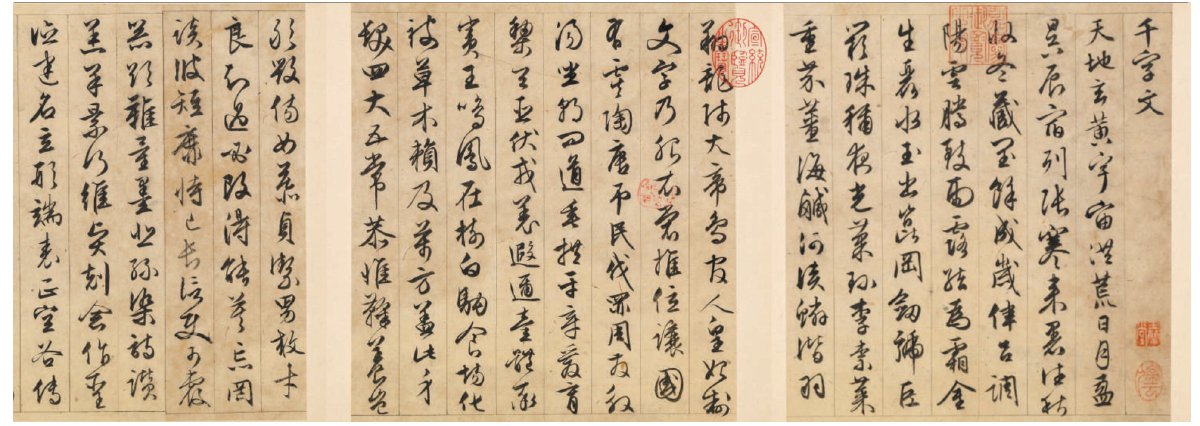 千字文
天地玄黃宇宙洪荒日月盈
昃辰宿列張寒來暑往秋
收冬藏閏餘成歲律呂調
陽雲騰致雨露結為霜金
生麗水玉出崑岡劒號巨
闕珠稱夜光菓珍李柰菜
重芥薑海鹹河淡鱗潛羽
翔龍師火帝鳥官人皇始制
文字乃服衣裳推位讓國
有虞陶唐弔民伐罪周發殷
湯坐朝問道垂拱平章愛育
黎首臣伏戎羌遐邇壹體率
賓王鳴鳳在樹白駒食場化
被草木賴及萬方蓋此身
髮四大五常恭惟鞠養豈
敢毀傷女慕貞潔男效才
良知過必改得能莫忘罔
談彼短靡恃己長信使可覆
器欲難量墨悲絲染詩讚
羔羊景行維賢剋念作聖
德建名立形端表正空谷傳